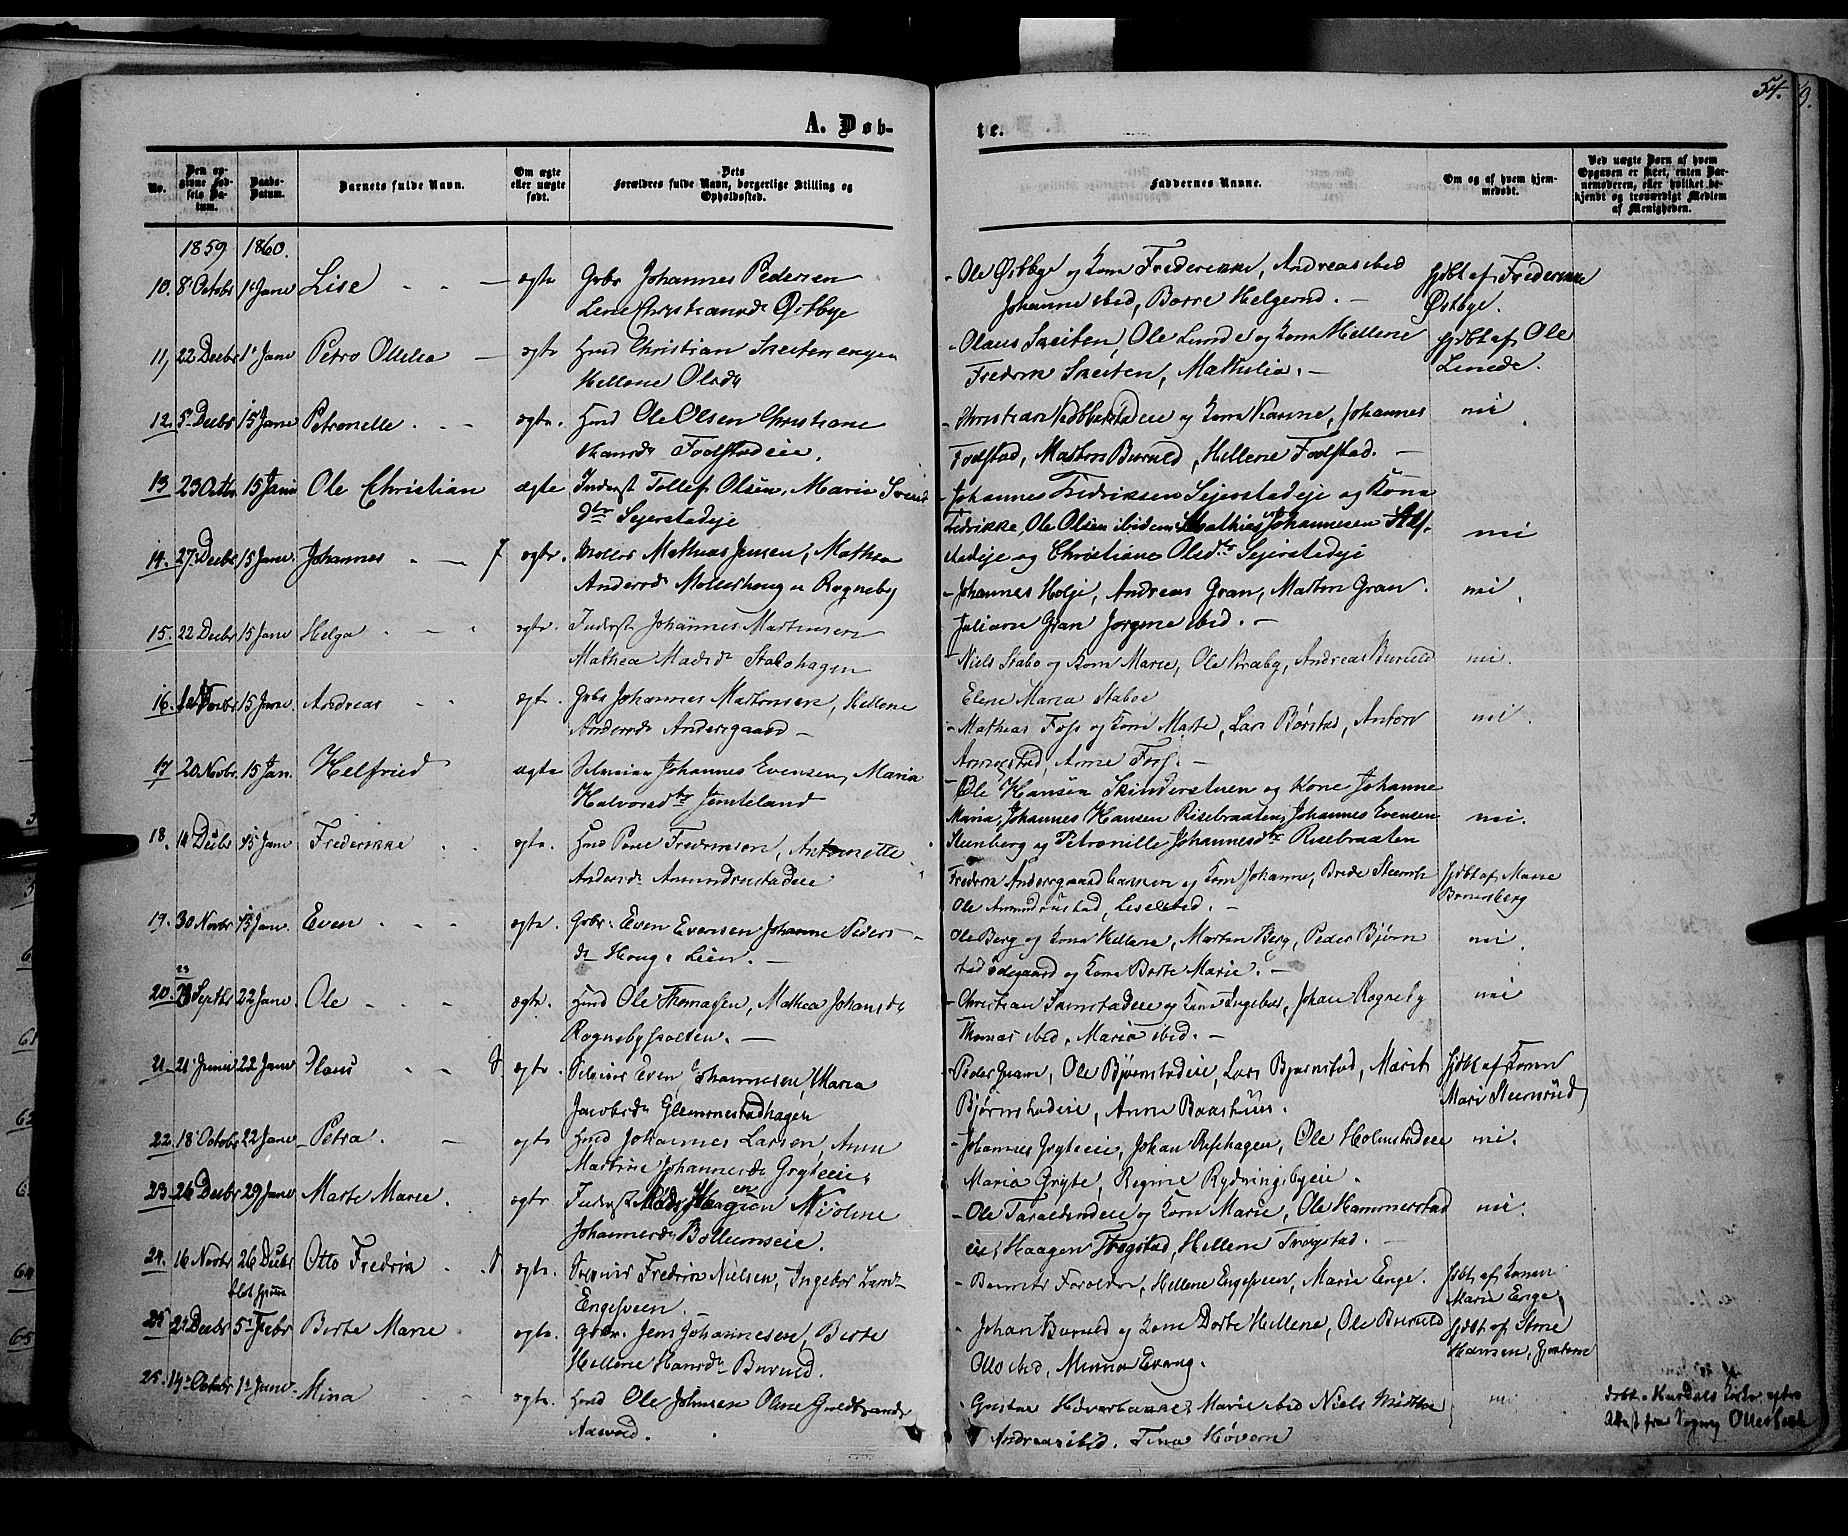 54. 9.
A. Døb-
te.
No.
Den opgivne Fødsels Datum.
Daabs-Datum.
Barnets fulde Navn.
Om ægte eller uægte født.
Dets Forældres fulde Navn, borgerlige Stilling og Opholdssted.
Faddernes Navne.
Om og af hvem hjemmedøbt.
Ved uægte Børn af hvem Opgaven er skeet, enten Barnemoderen, eller hvilket bekjendt og troværdigt Medlem af Menigheden.
1859 1860.
10. 8 Octobr 1 Janr Lise ægte Gbr Johannes Pedersen
Lene Christiansdr Østbye
- Ole Østbye og Kone Frederikke, Andreas ibid
Johanne ibid, Børre Helgerud. -
hjdbt af Frederikke
Østbye.
11, 22 Decbr 1 Janr Petra Ollelia ægte Husmd Christian Sneiten engen
Hellene Olsdr
- Olaus Sneiten, Ole Lunde og Kone Hellene
Fredrik Sneiten, Mathilia. -
hjdbt af Ole
Lunde.
12. 5 Decbr 15 Janr Petronelle ægte. Husmd Ole Olsen Christiane
Hansdr Fodstadeie.
- Christian og Kone Karine, Johannes
Fodstad, Marthe Buruld, Hellene Fodstad. -
nei
13 23 Octbr 15 Janr Ole Christian ægte Inderst Tollef Olsen, Marie Svends
dtr Sejerstadeje
- Johannes Fredriksen Sejerstadeje og Kone
Fredrikke, Ole Olsen ibidem, Mathias Johannesen
stadeje og Christiane Olsdtr Sejerstadeje
nei
14. 27 Decbr 15 Janr. Johannes ægte. Møller Mathias Jensen, Mathea
Andersdr Møllerhaugen Rogneby
- Johannes Holje, Andreas Gran, Marthe Gran.
Juliane Gran Jørgine ibid. -
nei.
15. 22 Decbr 15 Janr Helga ægte. Inderst Johannes Martinsen
Mathea Madsdr Stabohagen
- Niels Stabo og Kone Marie, Ole Kraby, Andreas Buruld
Elene Maria Staboe
nei.
16. 15 Janr. Andreas ægte. Gbr Johannes Mortensen, Hellene
Andersdr Andersgaard -
- Mathias Foss og Kone Marte, Lars Børstad, Anton
Annexstad, Anne Foss. -
nei.
17 20 Novbr. 15 Jan. Helfried ægte Selveier Johannes Evensen, Maria
Halvorsdtr Jemteland
- Ole Hansen Skinderstuen og Kone Johanne
Maria, Johannes Hansen Risebraaten, Johannes Evensen
Stenberg og Petronille Johannesdtr Risebraaten
nei.
18. 14 Decbr 15 Janr Frederikke ægte. Husmd Peder Fredriksen, Antonette
Andersdr Amundrustadeie
Fredrik Andersgaard og Kone Johanne, Brede
Ole Amundrustad, Lise ibid. -
hjdbt af Marie
19. 30 Novbr 15 Janr. Even ægte. Gbr. Even Evensen Johanne Peders-
dr Houg i Lien. -
Ole Berg og Kone Hellene, Morten Berg, Peder Bjørn
stadødegaard og Kone Berte Marie. -
nei.
20. 23 Septbr 22 Janr. Ole ægte. Husmd Ole Thomassen, Mathea Johansdr
Rognebyspolten. -
- Christian og Kone Ingebor, Johan Rogneby
Thomas ibid, Maria ibid. -
nei
21. 21 Junii 22 Janr Hans ægte. Selveier Even Johannesen, Maria
Jacobsdr Glemmestadhagen
- Peder Gram, Ole Bjørnstadeie, Lars Bjørnstad, Marit
Bjørnstadeie, Anne Baashuus.
hjdbt af Konen
Mari Steensrud
22. 18 Octobr 22 Janr - Petra. ægte Husmd Johannes Larsen, Anne
Martine Johannesdr Gryteeie.
- Johannes Gryteeie, Johan, Ole Holmstadeie
Maria Gryte, Regine Rydningsbyeie.
nei.
23. 26 Decbr 29 Janr Marte Marie. ægte Inderst Mads Haagen Nicoline
Johannesdr Bøllumseie.
- Ole og Kone Marie, Ole Hammerstad
eie, Haagen Thogstad, Hellene Trogstad. -
nei.
24. 16 Novbr 26 Decbr Otto Fredrik ægte. Fredrik Nielsen, Ingebor
Engesveen.
- Barnets Forældre, Hellene Engesveen, Marie Enge.
hjdbt af Konen
Marie Enge.
25 Decbr 5 Febr Berte Marie ægte. Gbr. Jens Johannesen, Berte
Hellene Hansdr Buruld.
- Johan Buruld og Kone Dorte Hellene, Ole Buruld
Otto ibid, Minna Evang.
hjdbt af Stine
Hansen,
25. 14 Octobr 1 Janr. Mina ægte. Husmd Ole Johnsen Oline Guldbrandsdr
Aasvold.
- Gustav Marie ibid Niels
Andreas ibid. Tina Høvern
nei
døbt i Hurdals Kirke efter
Attest fra Sogneprest